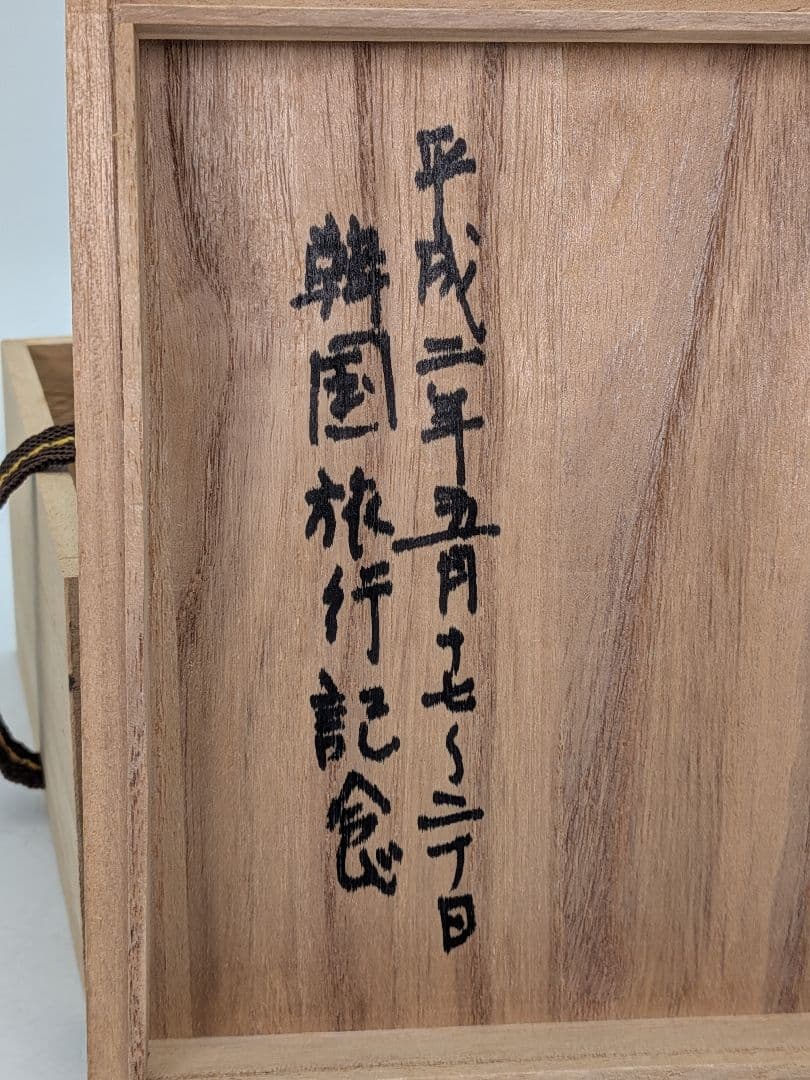 平成二年五月十七〜二十日
韓国旅行記念